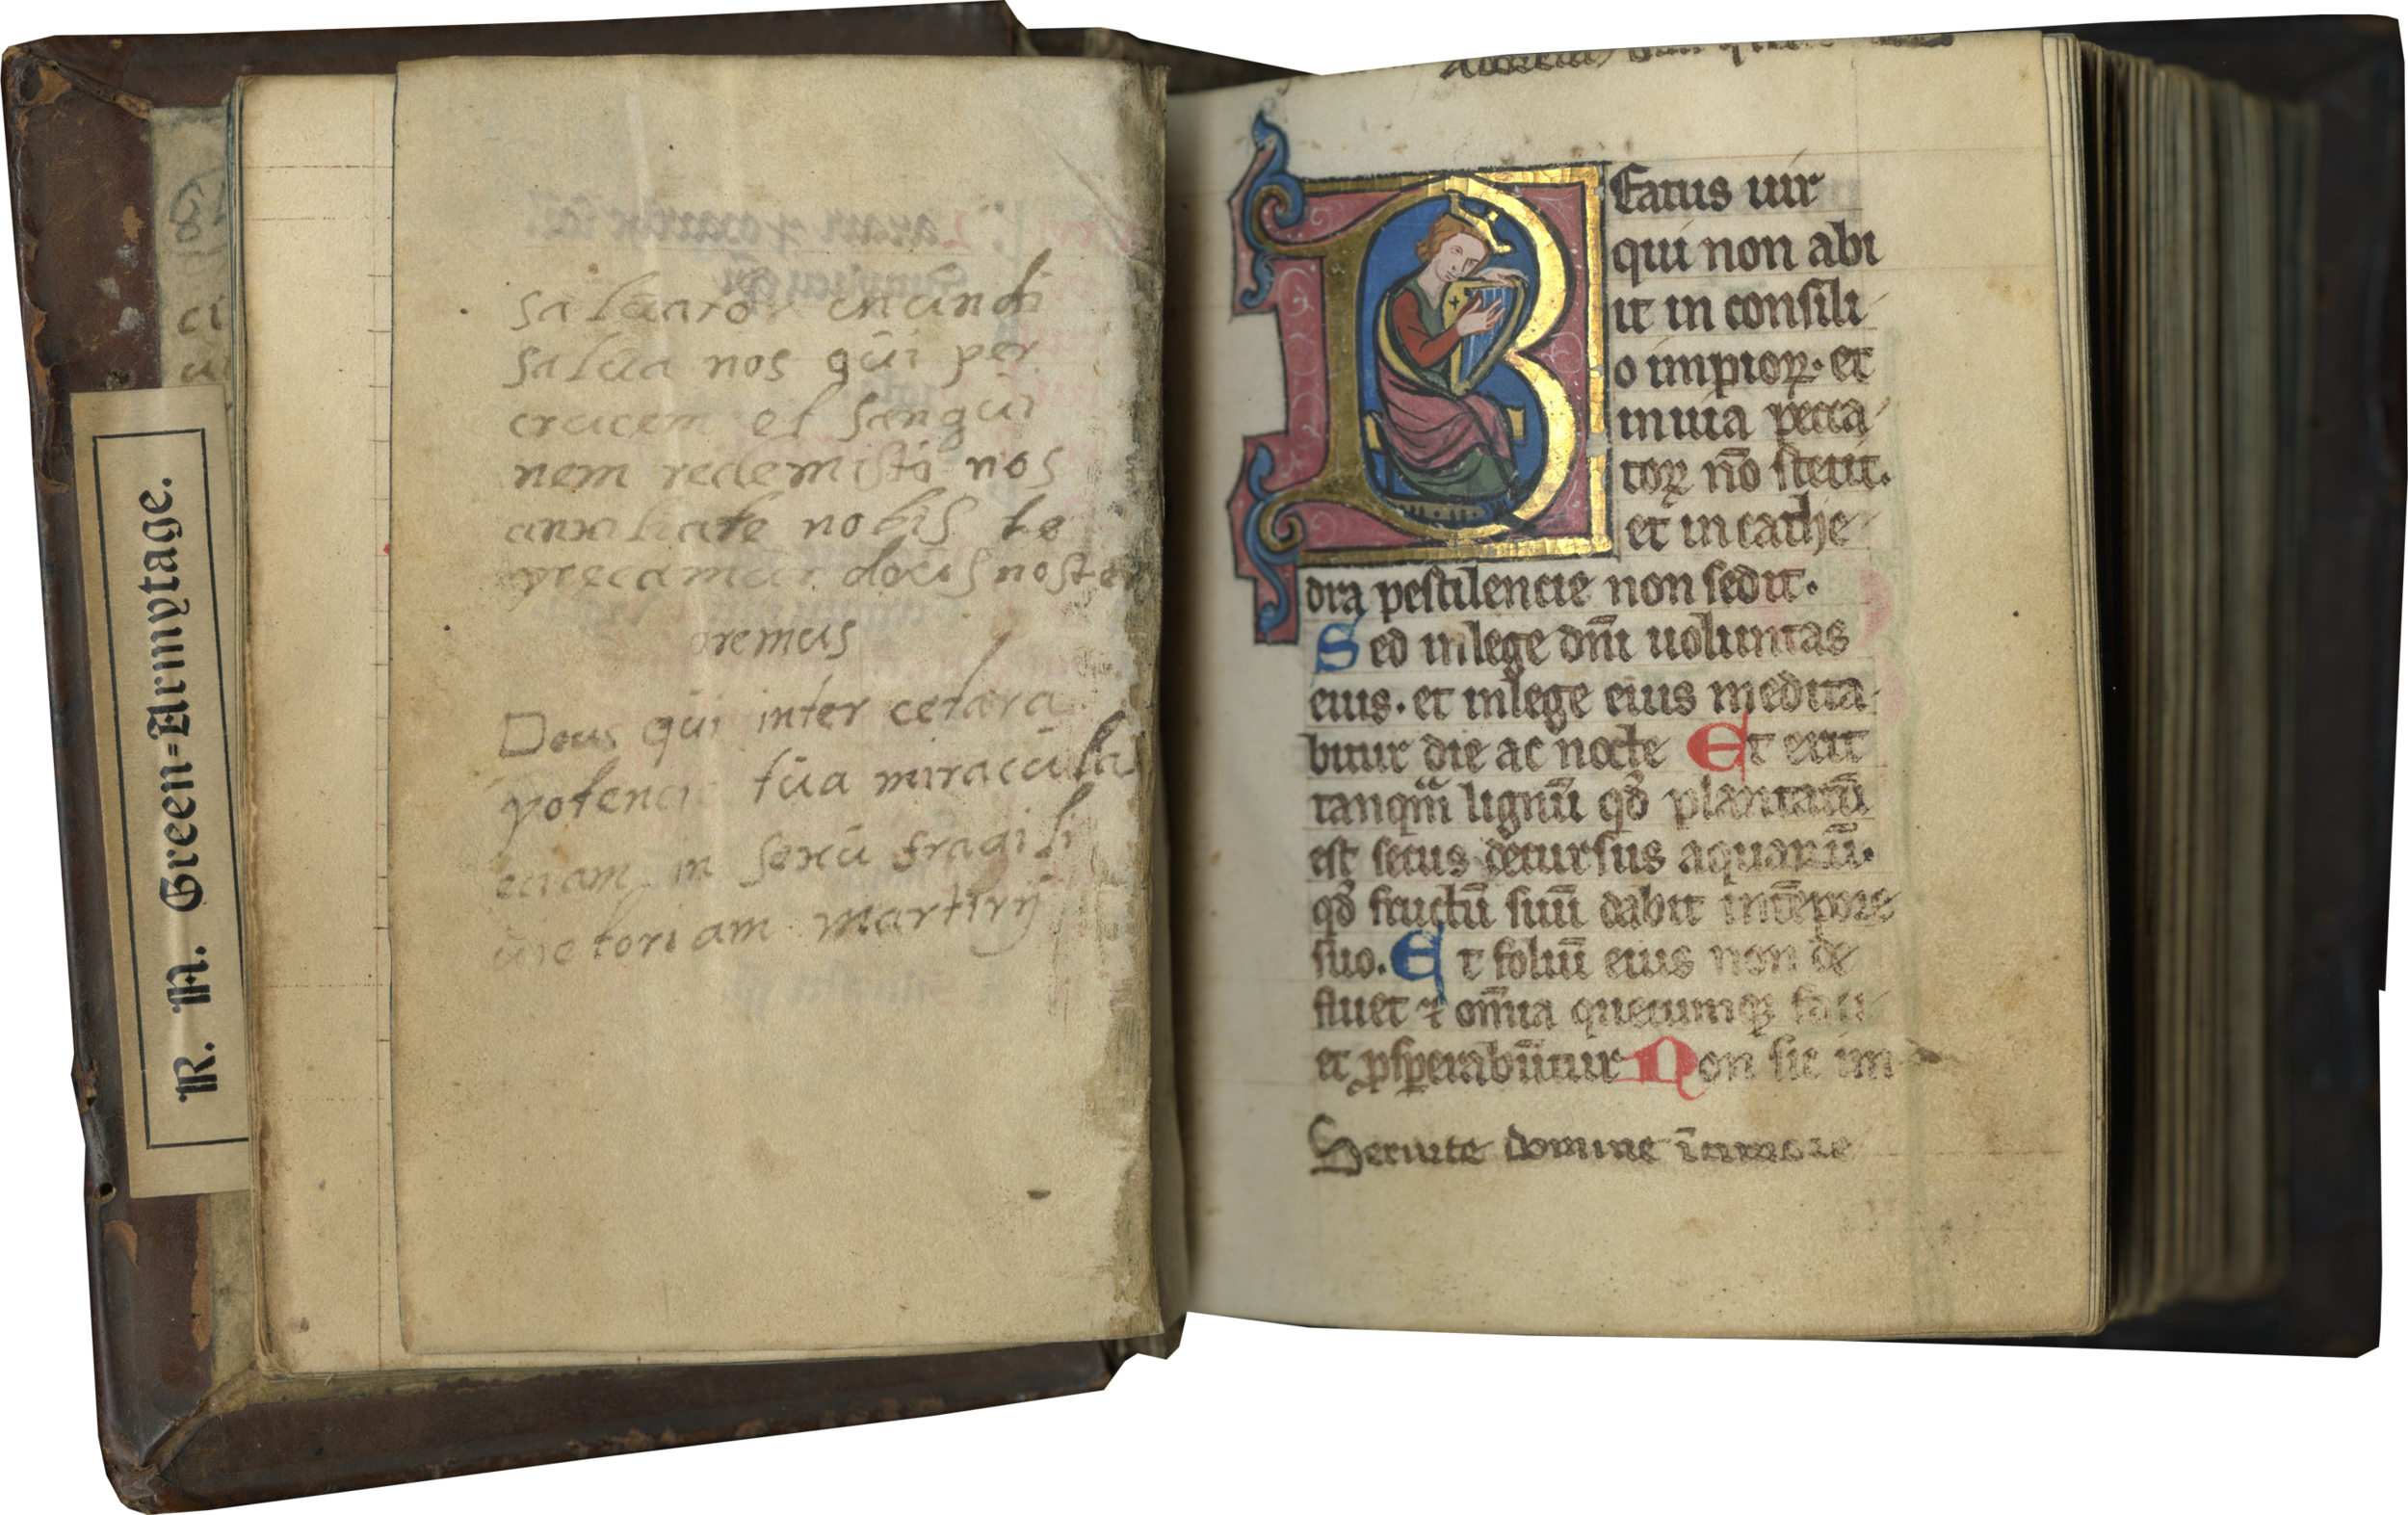 R. N. Green-Armytage.
saluator mundi
salua nos qui per
crucem et sangui
nem redemisti nos
auxiliare nobis te
precamur deus noster
oremus
Deus qui inter cetera
potencie tua miracula
eciam in sexu fragili
uictoriam martirij
Beatus uir
qui non abi
it in consili
o impioꝝ. et
in uia pecca
toꝝ nō stetit.
et in cathe
dra pestilencie non sedit.
Sed in lege dn̄i uoluntas
eius. et in lege eius medita
bitur die ac nocte Et erit
tanqm̄ lignū qd̓ plantatū
est secus decursus aquarū.
qd̓ fructū suū dabit in tēpore
suo. Et foliū eius non de
fluet ⁊ om̄ia quecumqꝫ faci
et ꝓsꝑabūtur Non sic im
Seruite domine ī timore